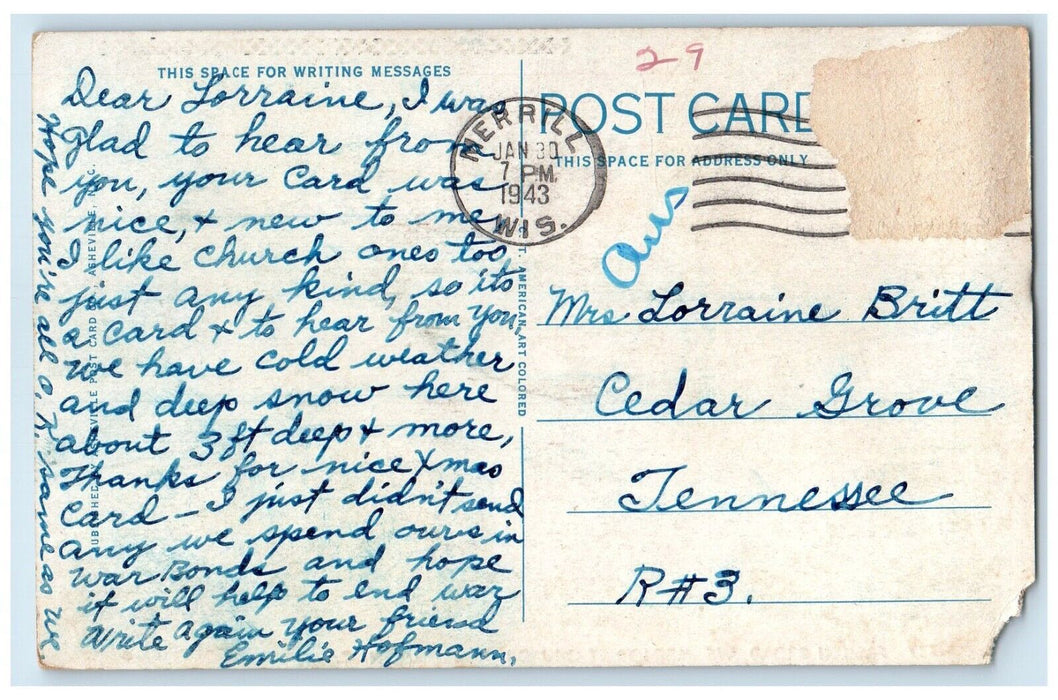 THIS SPACE FOR WRITING MESSAGES
Dear Lorraine, I was
Glad to hear from
you, your Card was
nice, & new to me
I like Church ones too
just any kind, so its
a Card & to hear from you,
we have cold weather
and deep snow here
about 3 ft deep & more,
Thanks for nice Xmas
Card - I just didn't send
any we spend ours in
War Bonds and hope
it will help to end war
Write again your friend
Emilie Hofmann,
Hope you're all O.K. same as we.
PUBLISHED POST CARD ASHEVILLE,
AMERICAN ART COLORED
29
POST CARD
THIS SPACE FOR ADDRESS ONLY
MERRILL
JAN 30
7 PM
1943
WIS.
Ans
Mrs Lorraine Britt
Cedar Grove
Tennessee
R#3.